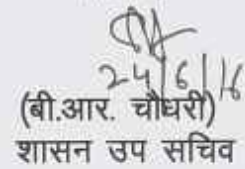 24/6/16
(बी.आर. चौधरी)
शासन उप सचिव